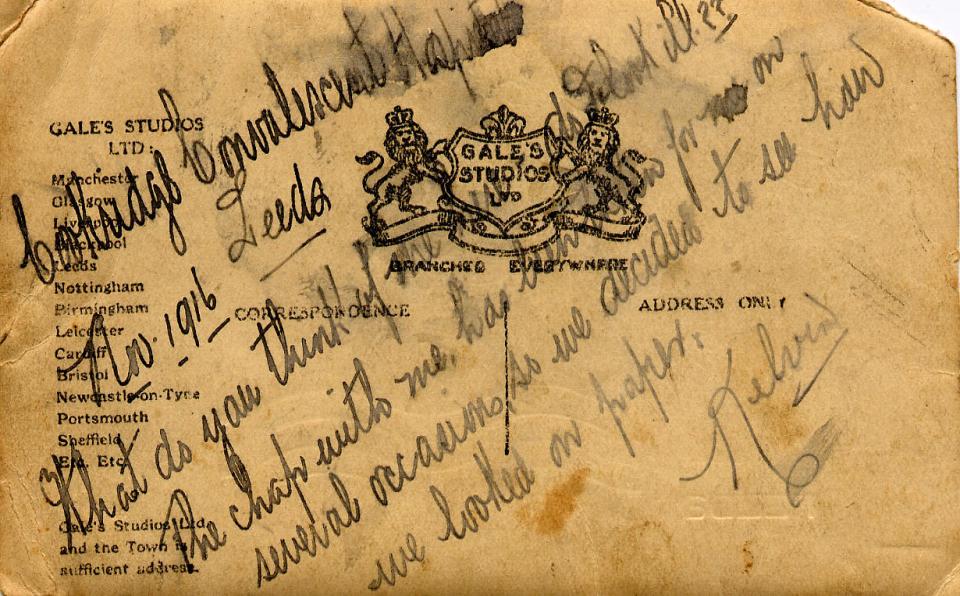 GALE'S STUDIOS
LTD:
Manchester
Glasgow
Liverpool
Blackpool
Leeds
Nottingham
Birmingham
Leicester
Cardiff
Bristol
Newcastle-on-Tyne
Portsmouth
Sheffield
Etc. Etc.
Gale's Studios Ltd
and the Town is
sufficient address.
GALE'S
STUDIOS
LTD
BRANCHES EVERYWHERE
CORRESPONDENCE
ADDRESS ONLY
Cookridge Convalescent Hospital
Leeds
Nov. 1916
What do you think of me do I look ill. ??
The chap with me, has been taken for me on
several occasions so we decided to see how
we looked on paper.
Kelvin